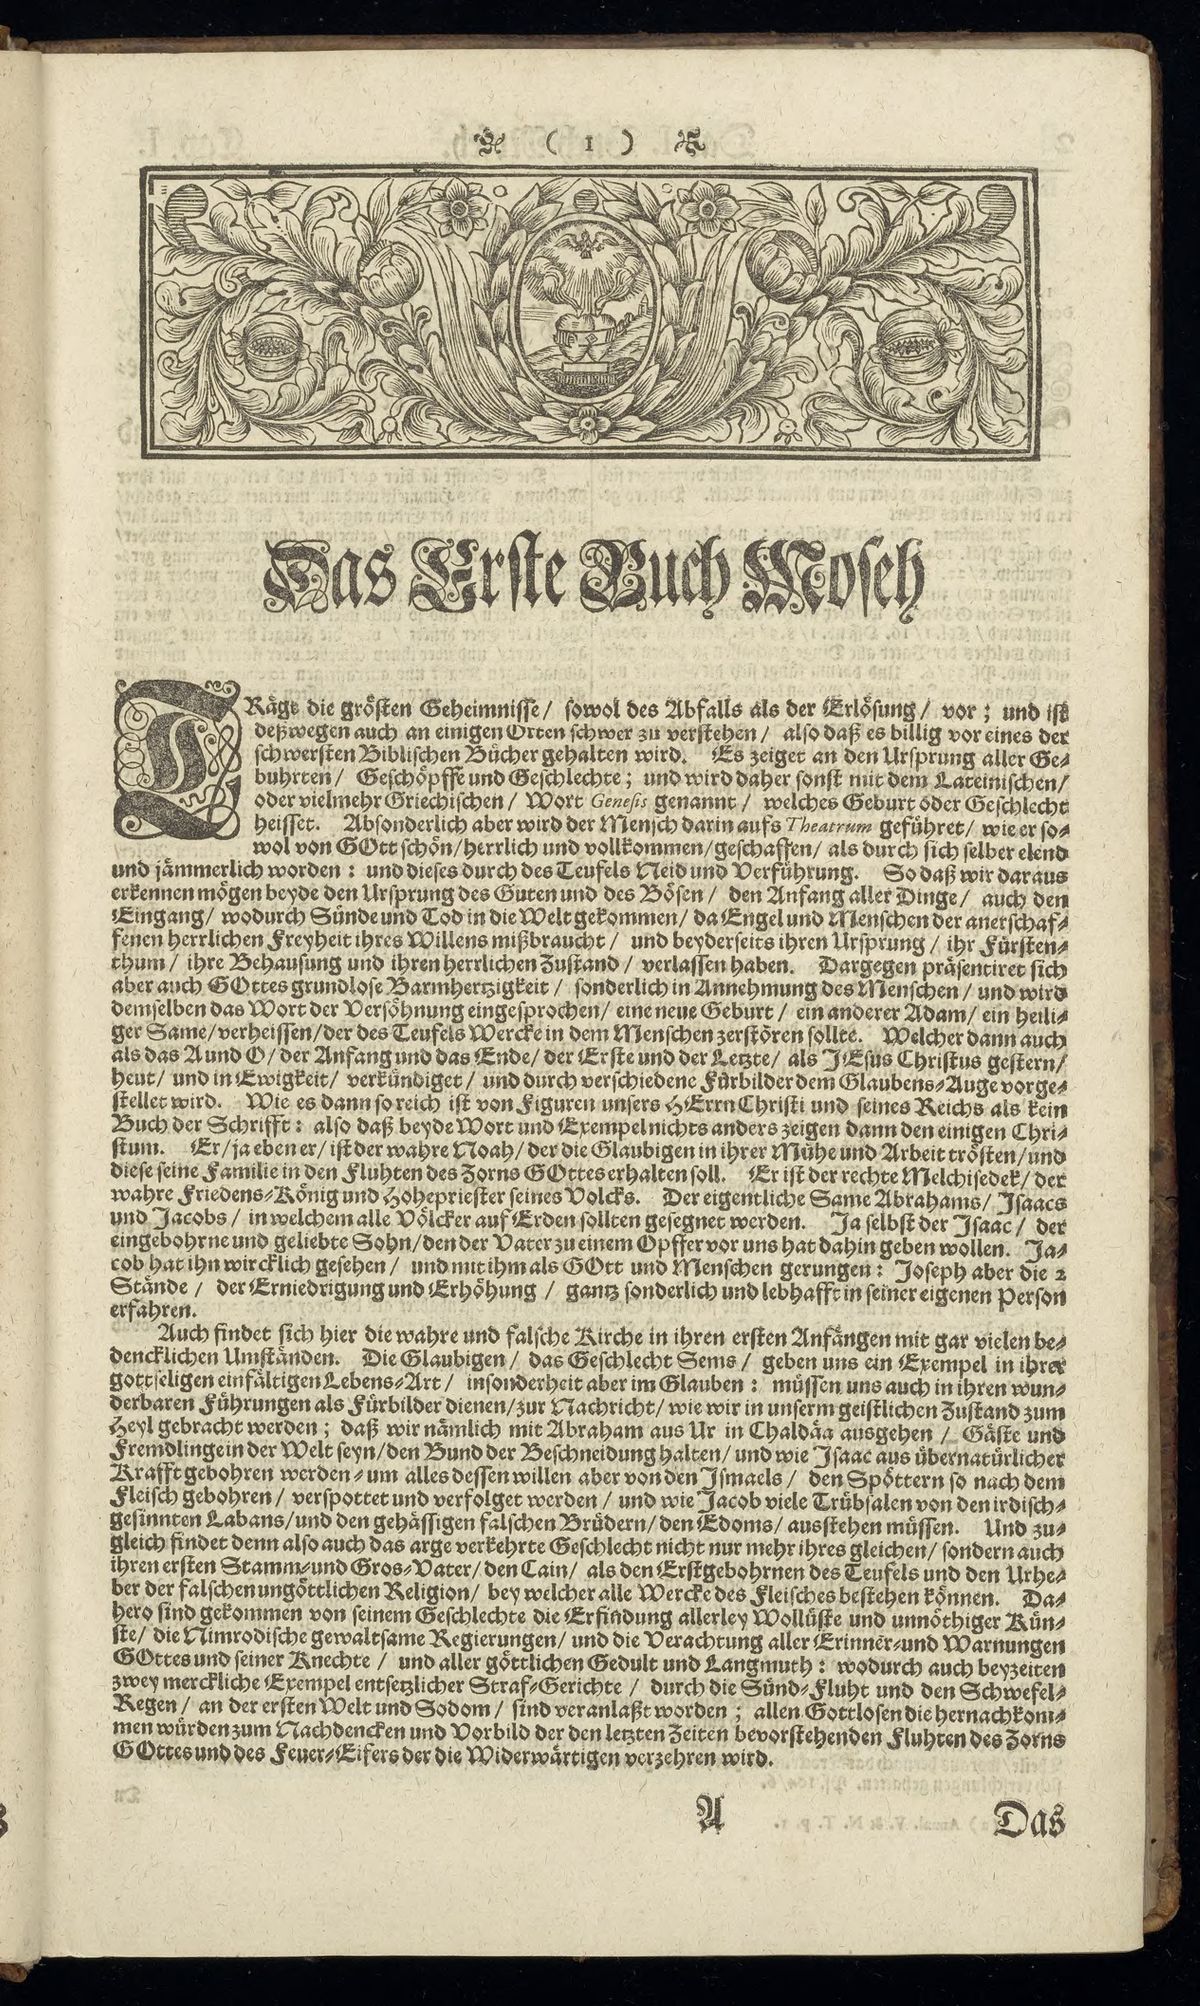 ( 1 )
Das Erste Buch Moseh
TRäge die grösten Geheimnisse/ sowol des Abfalls als der Erlösung/ vor; und ist
deßwegen auch an einigen Orten schwer zu verstehen/ also daß es billig vor eines der
schwersten Biblischen Bücher gehalten wird. Es zeiget an den Ursprung aller Ge-
buhrten/ Geschöpffe und Geschlechte; und wird daher sonst mit dem Lateinischen/
oder vielmehr Griechischen/ Wort Genesis genannt/ welches Geburt oder Geschlecht
heisset. Absonderlich aber wird der Mensch darin aufs Theatrum geführet/ wie er so-
wol von GOtt schön/herrlich und vollkommen/geschaffen/ als durch sich selber elend
und jämmerlich worden: und dieses durch des Teufels Neid und Verführung. So daß wir daraus
erkennen mögen beyde den Ursprung des Guten und des Bösen/ den Anfang aller Dinge/ auch den
Eingang/ wodurch Sünde und Tod in die Welt gekommen/ da Engel und Menschen der anerschaf-
fenen herrlichen Freyheit ihres Willens mißbraucht/ und beyderseits ihren Ursprung/ ihr Fürsten-
thum/ ihre Behausung und ihren herrlichen Zustand/ verlassen haben. Dargegen präsentiret sich
aber auch GOttes grundlose Barmhertzigkeit/ sonderlich in Annehmung des Menschen/ und wird
demselben das Wort der Versöhnung eingesprochen/ eine neue Geburt/ ein anderer Adam/ ein heili-
ger Same/verheissen/der des Teufels Wercke in dem Menschen zerstören sollte. Welcher dann auch
als das A und O/ der Anfang und das Ende/ der Erste und der Letzte/ als JEsus Christus gestern/
heut/ und in Ewigkeit/ verkündiget/ und durch verschiedene Fürbilder dem Glaubens-Auge vorge-
stellet wird. Wie es dann so reich ist von Figuren unsers HErrn Christi und seines Reichs als kein
Buch der Schrifft: also daß beyde Wort und Exempel nichts anders zeigen dann den einigen Chri-
stum. Er/ ja eben er/ ist der wahre Noah/ der die Glaubigen in ihrer Mühe und Arbeit trösten/und
diese seine Familie in den Fluhten des Zorns GOttes erhalten soll. Er ist der rechte Melchisedek/ der
wahre Friedens-König und Hohepriester seines Volcks. Der eigentliche Same Abrahams/ Isaacs
und Jacobs/ in welchem alle Völcker auf Erden sollten gesegnet werden. Ja selbst der Isaac/ der
eingebohrne und geliebte Sohn/den der Vater zu einem Opffer vor uns hat dahin geben wollen. Ja-
cob hat ihn wircklich gesehen/ und mit ihm als GOtt und Menschen gerungen: Joseph aber die 2
Stände/ der Erniedrigung und Erhöhung/ gantz sonderlich und lebhafft in seiner eigenen Person
erfahren.
Auch findet sich hier die wahre und falsche Kirche in ihren ersten Anfängen mit gar vielen be-
dencklichen Umständen. Die Glaubigen/ das Geschlecht Sems/ geben uns ein Exempel in ihrer
gottseligen einfältigen Lebens-Art/ insonderheit aber im Glauben: müssen uns auch in ihren wun-
derbaren Führungen als Fürbilder dienen/zur Nachricht/ wie wir in unserm geistlichen Zustand zum
Heyl gebracht werden; daß wir nämlich mit Abraham aus Ur in Chaldäa ausgehen/ Gäste und
Fremdlinge in der Welt seyn/den Bund der Beschneidung halten/ und wie Isaac aus übernatürlicher
Krafft gebohren werden- um alles dessen willen aber von den Ismaels/ den Spöttern so nach dem
Fleisch gebohren/ verspottet und verfolget werden/ und wie Jacob viele Trübsalen von den irdisch-
gesinnten Labans/und den gehässigen falschen Brüdern/ den Edoms/ ausstehen müssen. Und zu-
gleich findet denn also auch das arge verkehrte Geschlecht nicht nur mehr ihres gleichen/ sondern auch
ihren ersten Stamm-und Gros-Vater/ den Cain/ als den Erstgebohrnen des Teufels und den Urhe-
ber der falschen ungöttlichen Religion/ bey welcher alle Wercke des Fleisches bestehen können. Da-
hero sind gekommen von seinem Geschlechte die Erfindung allerley Wollüste und unnöthiger Kün-
ste/ die Nimrodische gewaltsame Regierungen/ und die Verachtung aller Erinner-und Warnungen
GOttes und seiner Knechte/ und aller göttlichen Gedult und Langmuth: wodurch auch beyzeiten
zwey merckliche Exempel entsetzlicher Straf-Gerichte/ durch die Sünd-Fluht und den Schwefel-
Regen/ an der ersten Welt und Sodom/ sind veranlaßt worden; allen Gottlosen die hernach kom-
men würden zum Nachdencken und Vorbild der den letzten Zeiten bevorstehenden Fluhten des Zorns
GOttes und des Feuer-Eifers der die Widerwärtigen verzehren wird.
A Das